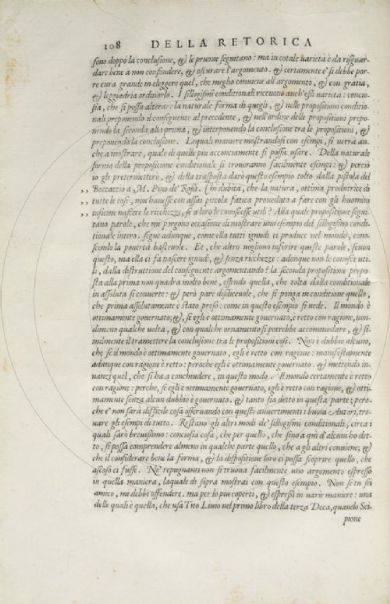 108 DELLA RETORICA
sono doppo la conclusione, & le pruoue seguitano: ma in cotale varietà è da risguar-
dare bene a non confondere, & oscurare l'argomento. & certamente e' si debbe por-
re cura grande in eleggere quel, che meglio conuiene all'argomento, & con gratia,
& leggiadria ordinarlo. I sillogismi conditionali riceuono anch'essi varietà: concio-
sia, che si possa alterare la naturale forma di quegli, & nelle propositioni conditio-
nali preponendo il conseguente al precedente, & nell'ordine delle propositioni prepo-
nendo la seconda alla prima, & interponendo la conclusione tra le propositioni,
preponendo la conclusione. Lequali maniere mostrandosi con esempi, si verrà an-
che a mostrare, quale di quelle più acconciamente si possa usare. Della naturale
forma della propositione conditionale si troueranno facilmente esempi: & perciò
io gli pretermetterò, & della trasposta darò questo esempio tolto dalla pistola del
Boccaccio a M. Pino de' Rossi. Chi dubita, che la natura, ottima produttrice di
,, tutte le cose, non hauesse con assai piccola fatica proueduto a fare con gli huomini
,, insieme nascere le ricchezze, se a loro le conoscesse utili? Alla quale propositione segui-
tano parole, che mi porgono occasione di mostrare uno esempio del sillogismo condi-
tionale intero. segue adunque, come ella tutti ignudi ci produce nel mondo, cono-
scendo la pouertà basteuole. Et, che altro vogliono inferire queste parole, senon
questo, ma ella ci fa nascere ignudi, & senza ricchezze: adunque non le conosce uti-
li. dalla destruttion del conseguente argomentando è la seconda propositione propo-
sta alla prima non quadra molto bene, essendo quella, che tolta dalla conditionale
in assoluta si conuerte: & però pare diseuole, che si ponga in conditione quello,
che prima assolutamente è stato preso: come in questo esempio si uede. Il mondo è
ottimamente gouernato; &, se egli è ottimamente gouernato, è retto con ragione. non-
dimeno qualche uolta, & con qualche ornamento si potrebbe accommodare, & si-
milmente il tramettere la conclusione tra le propositioni così. Non è dubbio alcuno,
che se il mondo è ottimamente gouernato, egli è retto con ragione: manifestamente
adunque con ragione è retto: perche egli è ottimamente gouernato. & mettendo in-
nanzi quel, che si ha a conchiudere, in questo modo. Il mondo certamente è retto
con ragione: perche, se egli è ottimamente gouernato, egli è retto con ragione, & otti-
mamente senza alcun dubbio è gouernato. & tanto sia detto in questa parte; perche
che e' non sarà difficile cosa osseruando con questi auuertimenti i buoni Autori, tro-
uare gli esempi di tutto. Restano gli altri modi de' sillogismi conditionali, circa i
quali sarò breuissimo: conciosia cosa, che per quello, che sino a quì d'alcuni ho det-
to, si possa comprendere almeno in qualche parte quello, che a gli altri conuiene; &
che il considerare bene la forma, & la dispositione loro ci possa scoprire quello, che
ascoso ci fusse. Ne' repugnanti non si truoua facilmente uno argomento espresso
in quella maniera, laquale di sopra mostrai con questo esempio. Non se tu sei
amico, ma debbe offendere. ma per lo più coperti, & espressi in varie maniere: una
delle quali è quello, che usa Tito Liuio nel primo libro della terza Deca, quando Sci-
pione